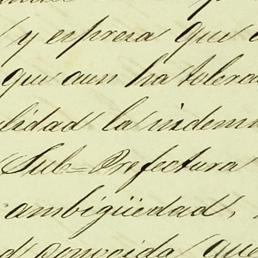 y espresa que
que aun ha tolera
lidad la indem
Sub=Prefectura
ambigüedad,
conocida que